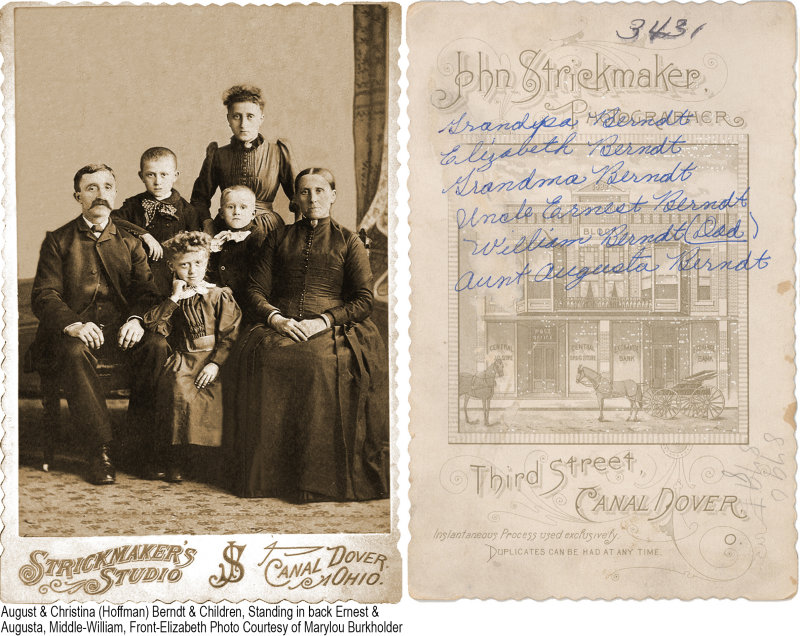 STRICKMAKER'S
STUDIO
JS
CANAL DOVER.
OHIO.
August & Christina (Hoffman) Berndt & Children, Standing in back Ernest &
Augusta, Middle-William, Front-Elizabeth Photo Courtesy of Marylou Burkholder
3431
John Strickmaker,
PHOTOGRAPHER
Grandpa Berndt
Elizabeth Berndt
Grandma Berndt
Uncle Ernest Berndt
William Berndt (Dad)
Aunt Augusta Berndt
POST
OFFICE
CENTRAL
DRUG STORE
BANK
BANK
Third Street,
CANAL DOVER,
O.
Instantaneous Process used exclusively.
DUPLICATES CAN BE HAD AT ANY TIME.